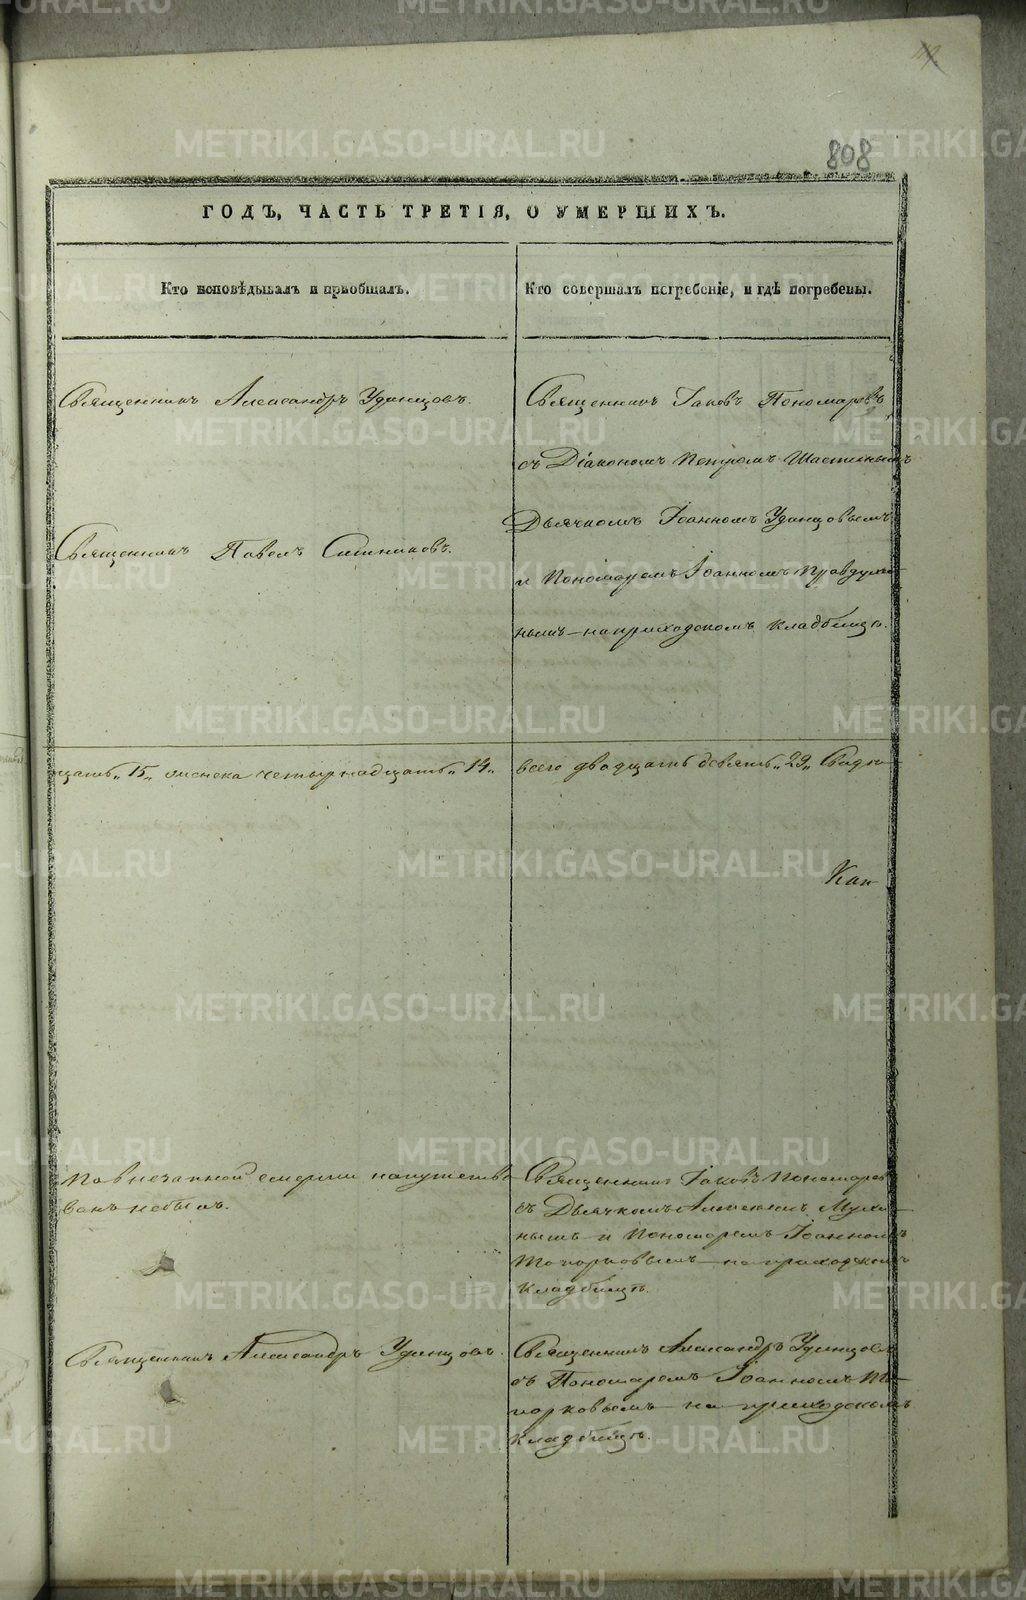 808
ГОДЪ, ЧАСТЬ ТРЕТІЯ, О УМЕРШИХЪ.
Кто исповѣдывалъ и пріобщалъ.
Кто совершалъ погребеніе, и гдѣ погребены.
Священникъ Александръ Удинцовъ.
Священникъ Павелъ Ситниковъ.
Священникъ Іаковъ Пономаревъ
съ Діакономъ Петромъ
Дьячкомъ Іоанномъ Удинцовымъ
и Пономаремъ Іоанномъ Правдух-
нымъ – на приходскомъ кладбищѣ.
цать „15„ женска четырнадцать „14„
всего двадцать девять „29„
Кан
По внезапной смерти напутство-
ванъ не былъ.
Священникъ Іаковъ Пономаревъ
съ Дьячкомъ Мухи-
нымъ и Пономаремъ Іоанномъ
Топорковымъ – на приходскомъ
кладбищѣ.
Священникъ Александръ Удинцовъ.
Священникъ Александръ Удинцовъ
съ Пономаремъ Іоанномъ То-
порковымъ на приходскомъ
кладбищѣ.
METRIKI.GASO-URAL.RU